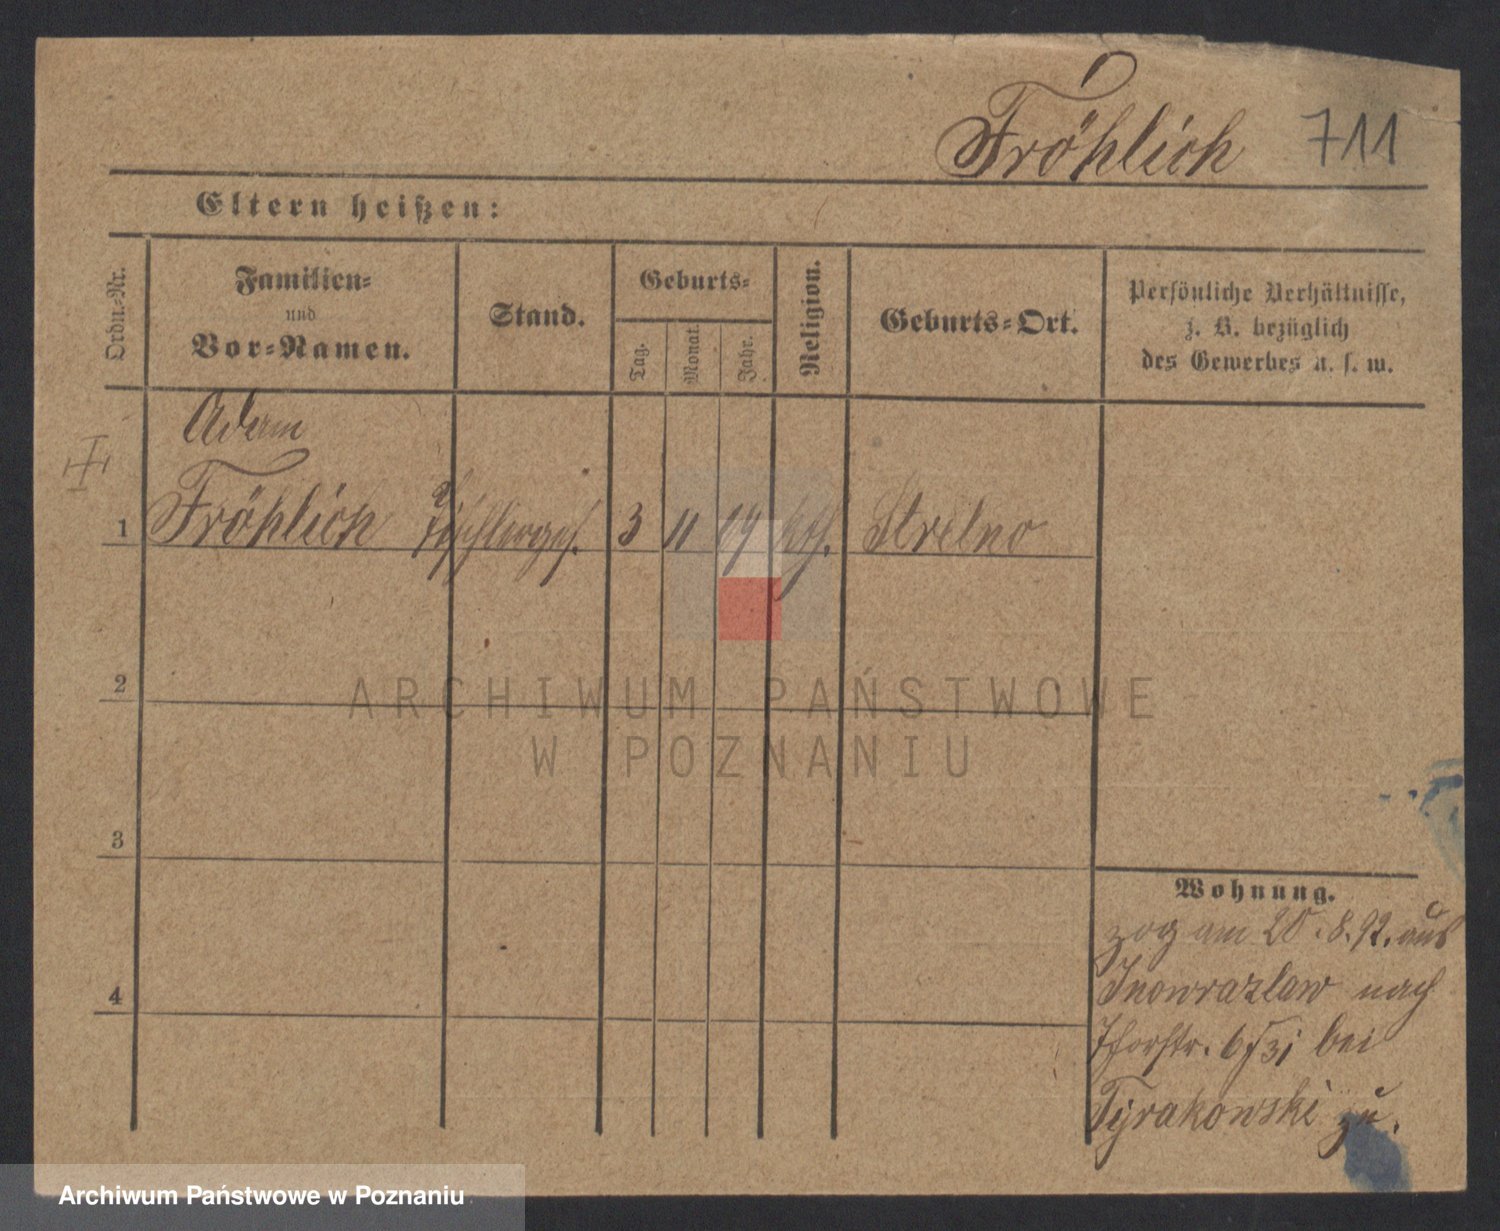 Fröhlich 711
Eltern heißen:
Ordn.-Nr.
Familien-
und
Vor-Namen.
Stand.
Geburts-
Tag.
Monat.
Jahr.
Religion.
Geburts-Ort.
Persönliche Verhältnisse,
z. B. bezüglich
des Gewerbes u. s. w.
Adam
1 Fröhlich Tischlerges. 3 11 kth. Strelno
2
3
4
Wohnung.
zog am 20.8.92. aus
Inowrazlaw nach
bei
Tyrakowski zu.
ARCHIWUM PAŃSTWOWE
W POZNANIU
Archiwum Państwowe w Poznaniu